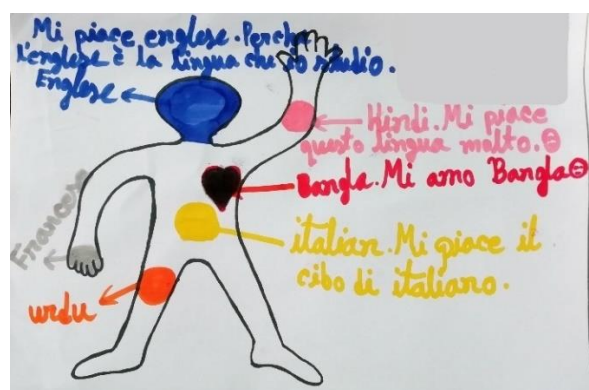 Mi piace englese. Perche
l'englese è la lingua che io studio.
Englese
Hindi. Mi piace
questo lingua malto.
Bangla. Mi amo Bangla
Francese
italian. Mi piace il
cibo di italiano.
urdu